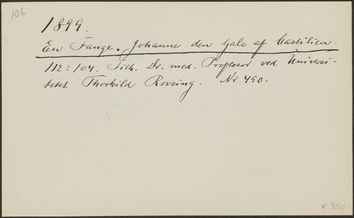 106
1899.
En Fange. Johanne den Gale af Castilien.
112 : 104. Tilh. Dr. med. Professor ved Universi-
tetet Thorkild Rovsing. No 490.